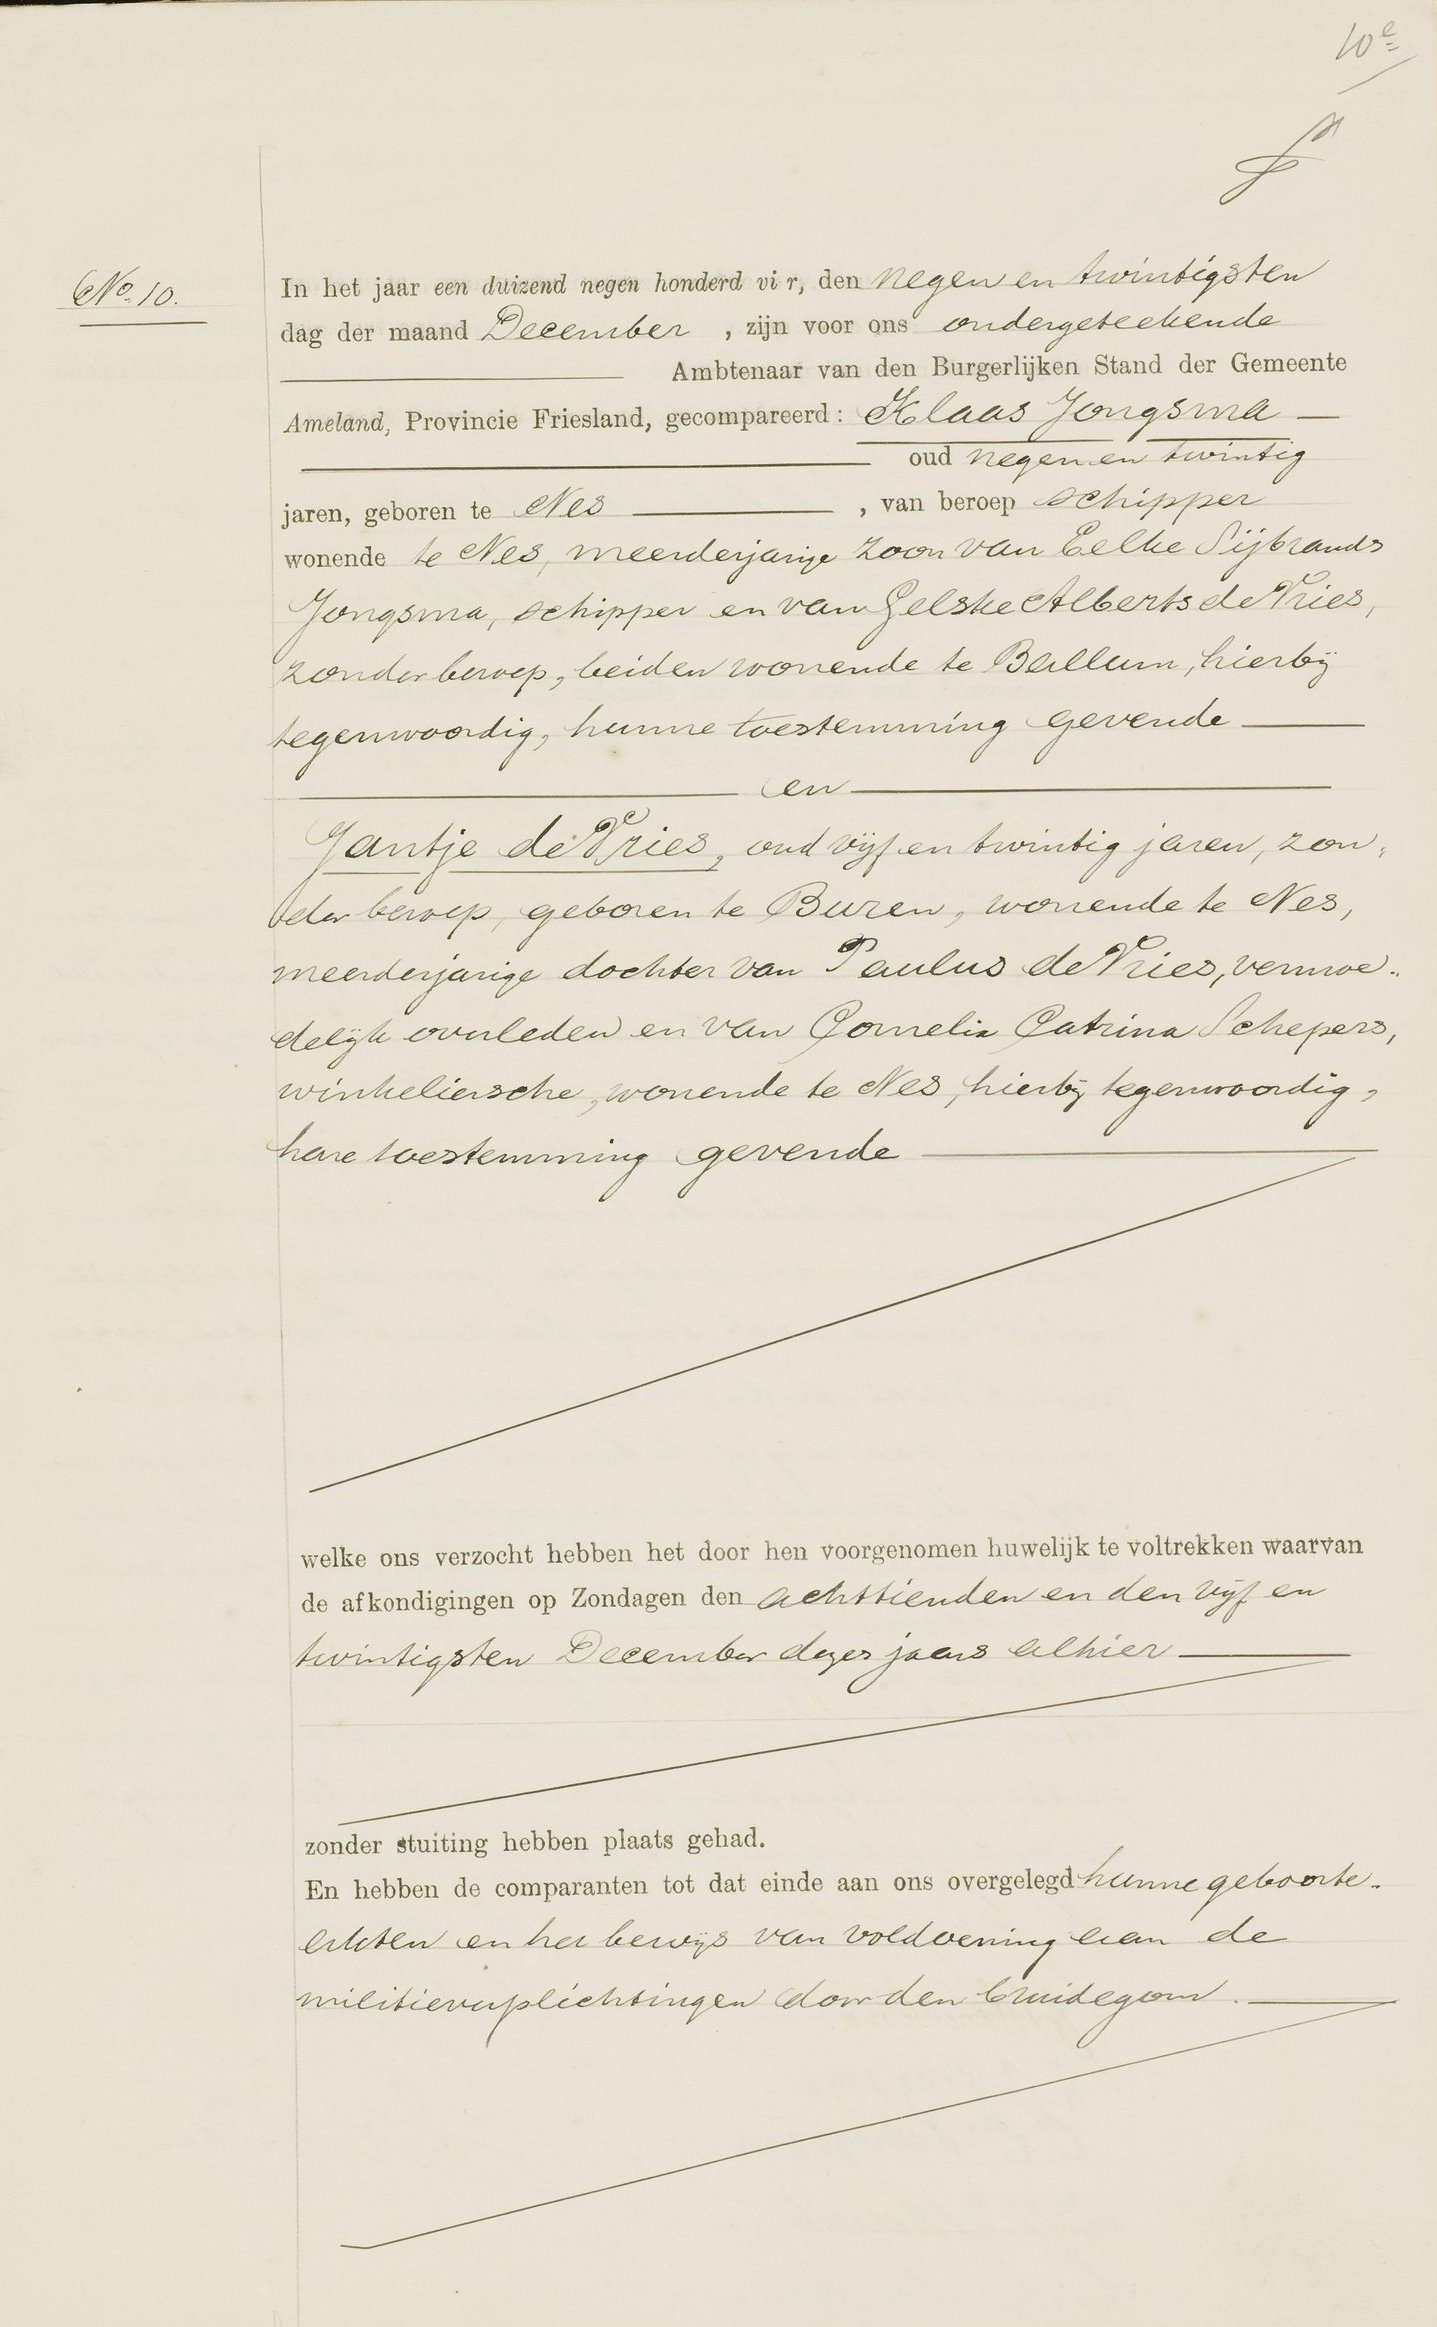 10e
No. 10.
In het jaar een duizend negen honderd vi r, den negen en twintigsten
dag der maand December , zijn voor ons ondergeteekende
Ambtenaar van den Burgerlijken Stand der Gemeente
Ameland, Provincie Friesland, gecompareerd: Klaas Jongsma
oud negen en twintig
jaren, geboren te Nes , van beroep schipper
wonende te Nes, meerderjarige zoon van Eelke Sijbrands
Jongsma, schipper en van Gelske Alberts de Vries,
zonder beroep, beiden wonende te Ballum, hierbij
tegenwoordig, hunne toestemming gevende
en
Jantje de Vries, oud vijf en twintig jaren, zon„
der beroep, geboren te Buren, wonende te Nes,
meerderjarige dochter van Paulus de Vries, vermoe„
delijk overleden en van Cornelia Catrina Schepers,
winkeliersche, wonende te Nes, hierbij tegenwoordig,
hare toestemming gevende
welke ons verzocht hebben het door hen voorgenomen huwelijk te voltrekken waarvan
de afkondigingen op Zondagen den achttienden en den vijf en
twintigsten December dezes jaars alhier
zonder stuiting hebben plaats gehad.
En hebben de comparanten tot dat einde aan ons overgelegd hunne geboorte„
akten en het bewijs van voldoening aan de
militieverplichtingen door den bruidegom.